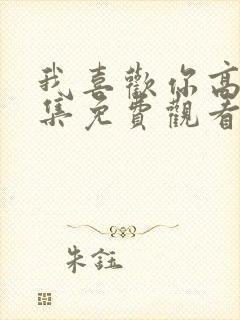 我喜歡你高
集免費觀看
朱鈺